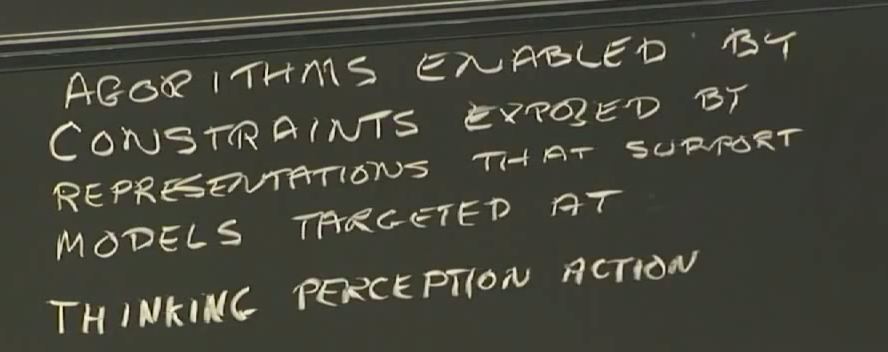 AGORITHMS ENABLED BY
CONSTRAINTS EXPOSED BY
REPRESENTATIONS THAT SUPPORT
MODELS TARGETED AT
THINKING PERCEPTION ACTION